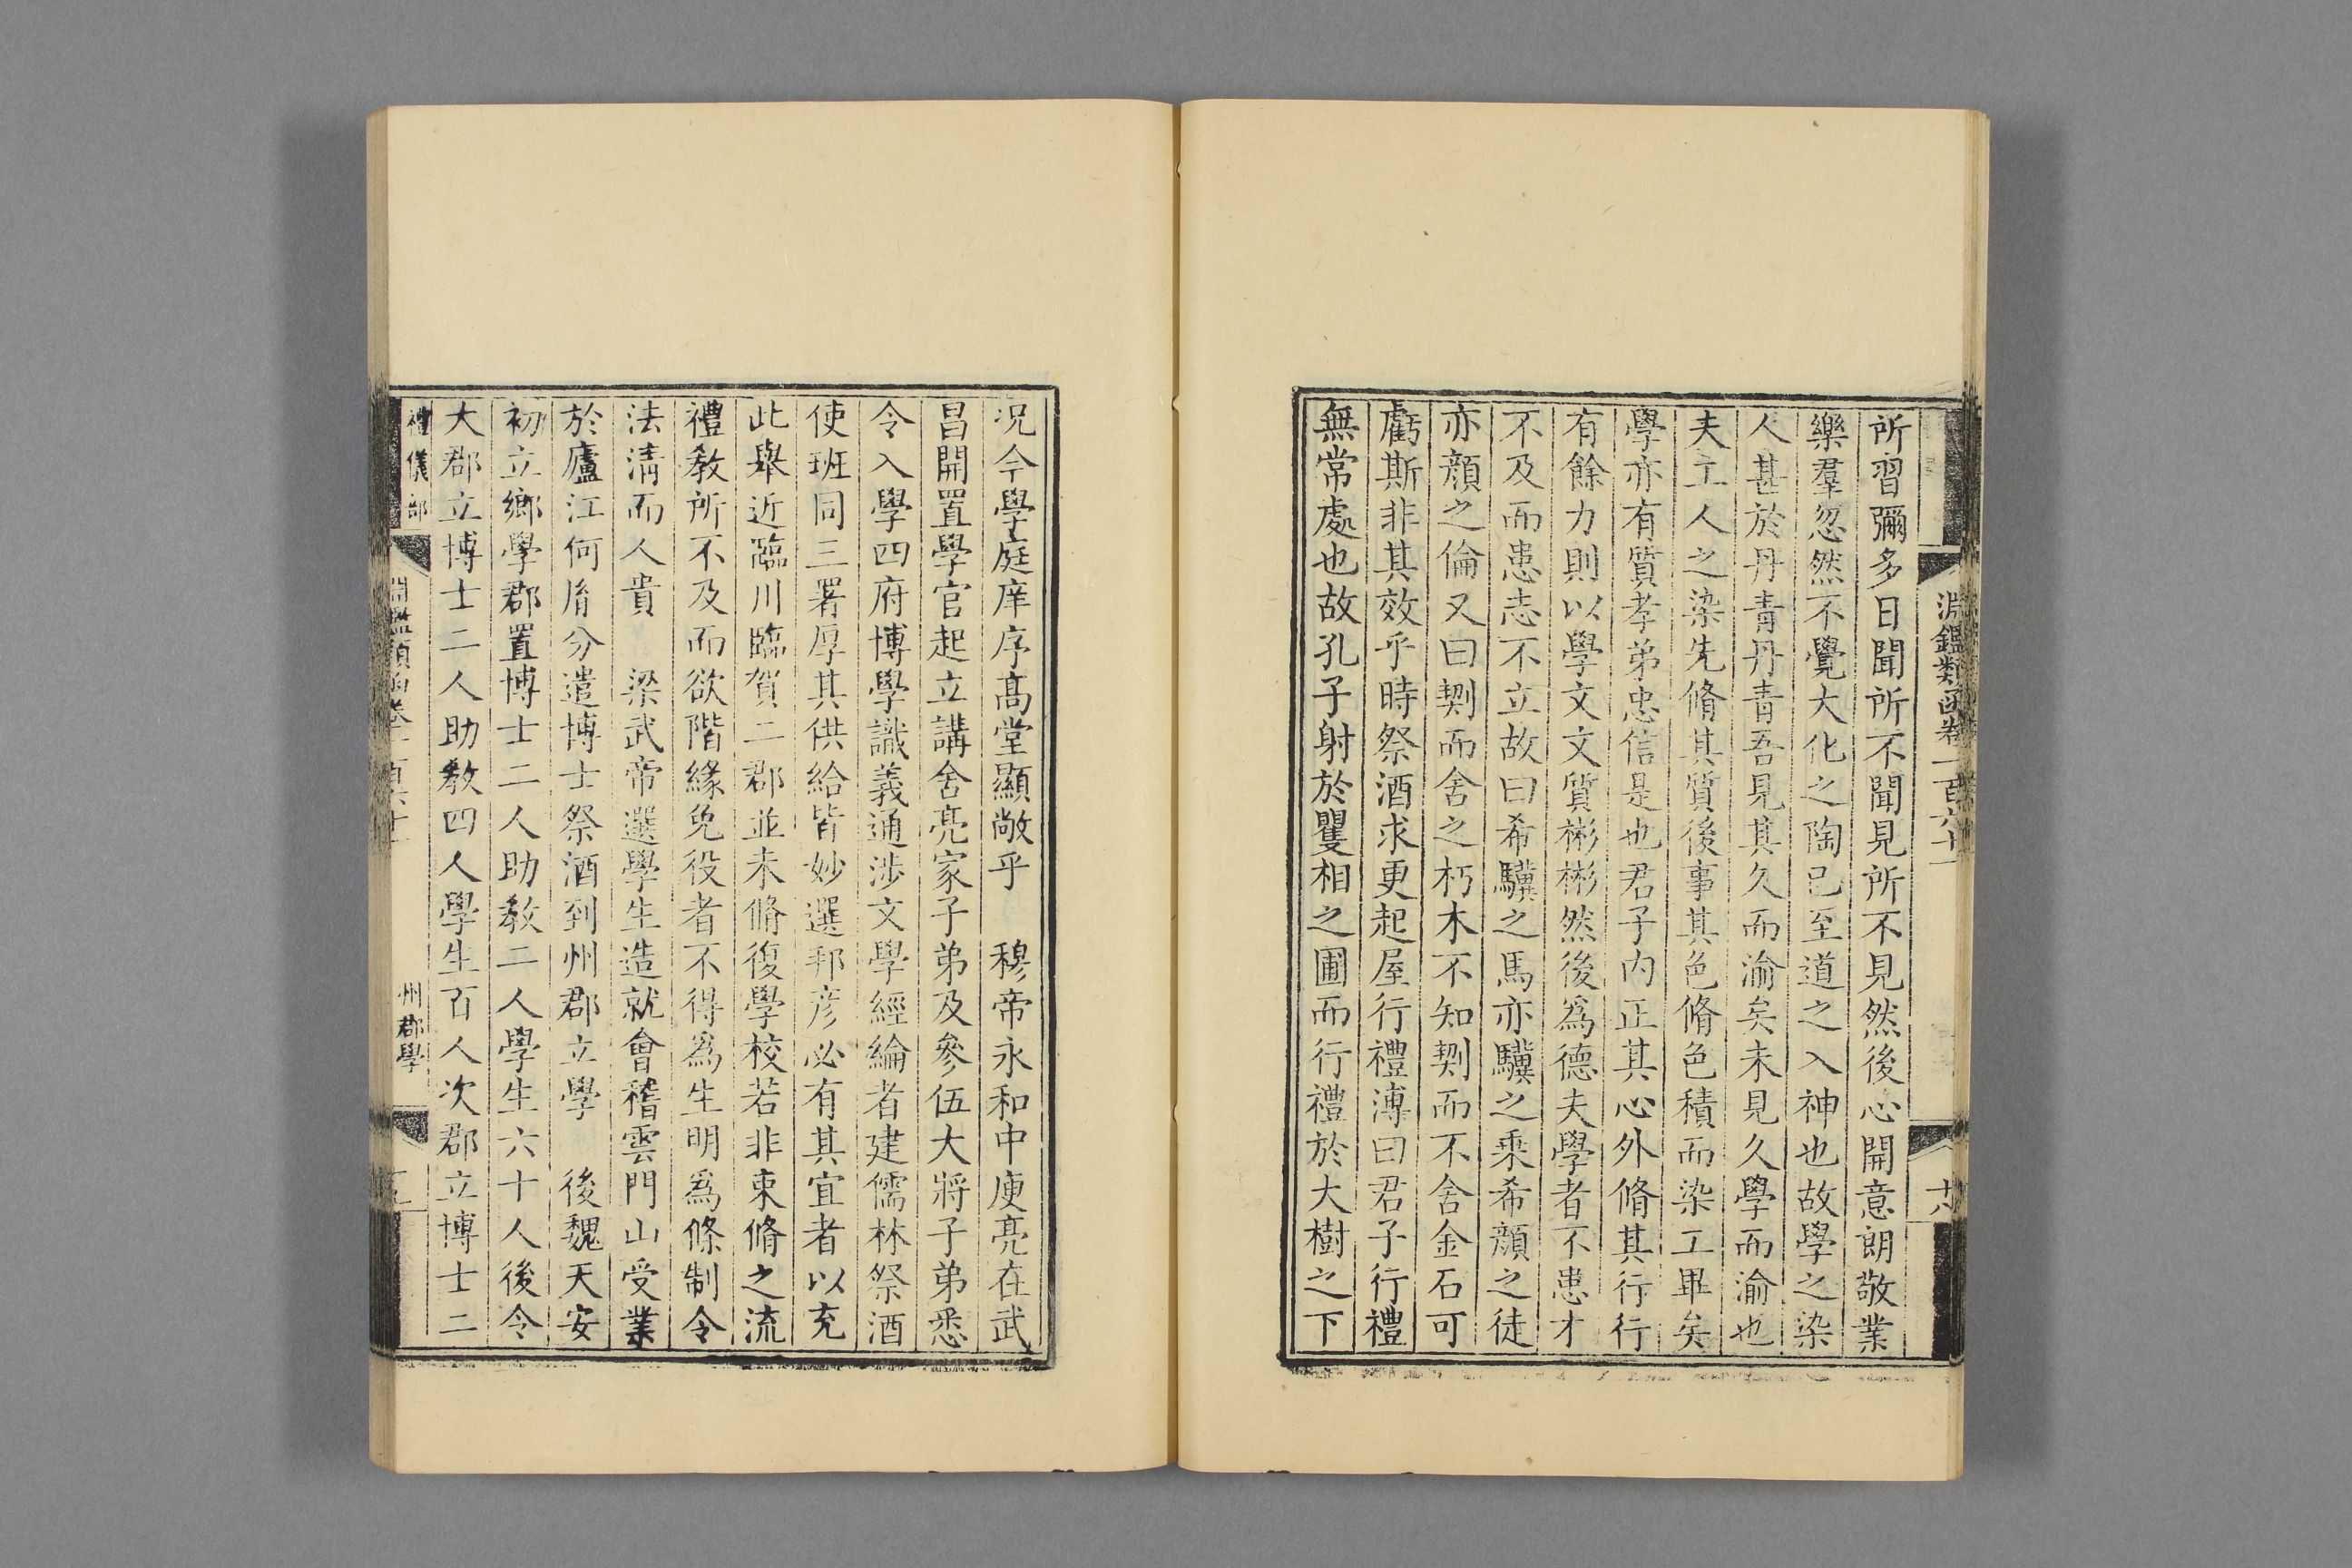 淵鑑類函卷一百六十一
十八
所習彌多日聞所不聞見所不見然後心開意朗敬業
樂羣忽然不覺大化之陶已至道之入神也故學之染
人甚於丹青丹青吾見其久而渝矣未見久學而渝也
夫工人之染先脩其質後事其色脩色積而染工畢矣
學亦有質孝弟忠信是也君子內正其心外脩其行行
有餘力則以學文文質彬彬然後爲德夫學者不患才
不及而患志不立故曰希驥之馬亦驥之乘希顏之徒
亦顏之倫又曰剌而舍之朽木不知剌而不舍金石可
虧斯非其效乎時祭酒求更起屋行禮溥曰君子行禮
無常處也故孔子射於矍相之圃而行禮於大樹之下
況今學庭庠序高堂顯敞乎　穆帝永和中庾亮在武
昌開置學官起立講舍亮家子弟及參伍大將子弟悉
令入學四府博學識義通涉文學經綸者建儒林祭酒
使班同三署厚其供給皆妙選邦彦必有其宜者以充
此舉近臨川臨賀二郡並未脩復學校若非束脩之流
禮敎所不及而欲階緣免役者不得爲生明爲條制令
法淸而人貴　梁武帝選學生造就會稽雲門山受業
於廬江何胤分遣博士祭酒到州郡立學　後魏天安
初立鄉學郡置博士二人助敎二人學生六十人後令
大郡立博士二人助敎四人學生百人次郡立博士二
禮儀部
州郡學